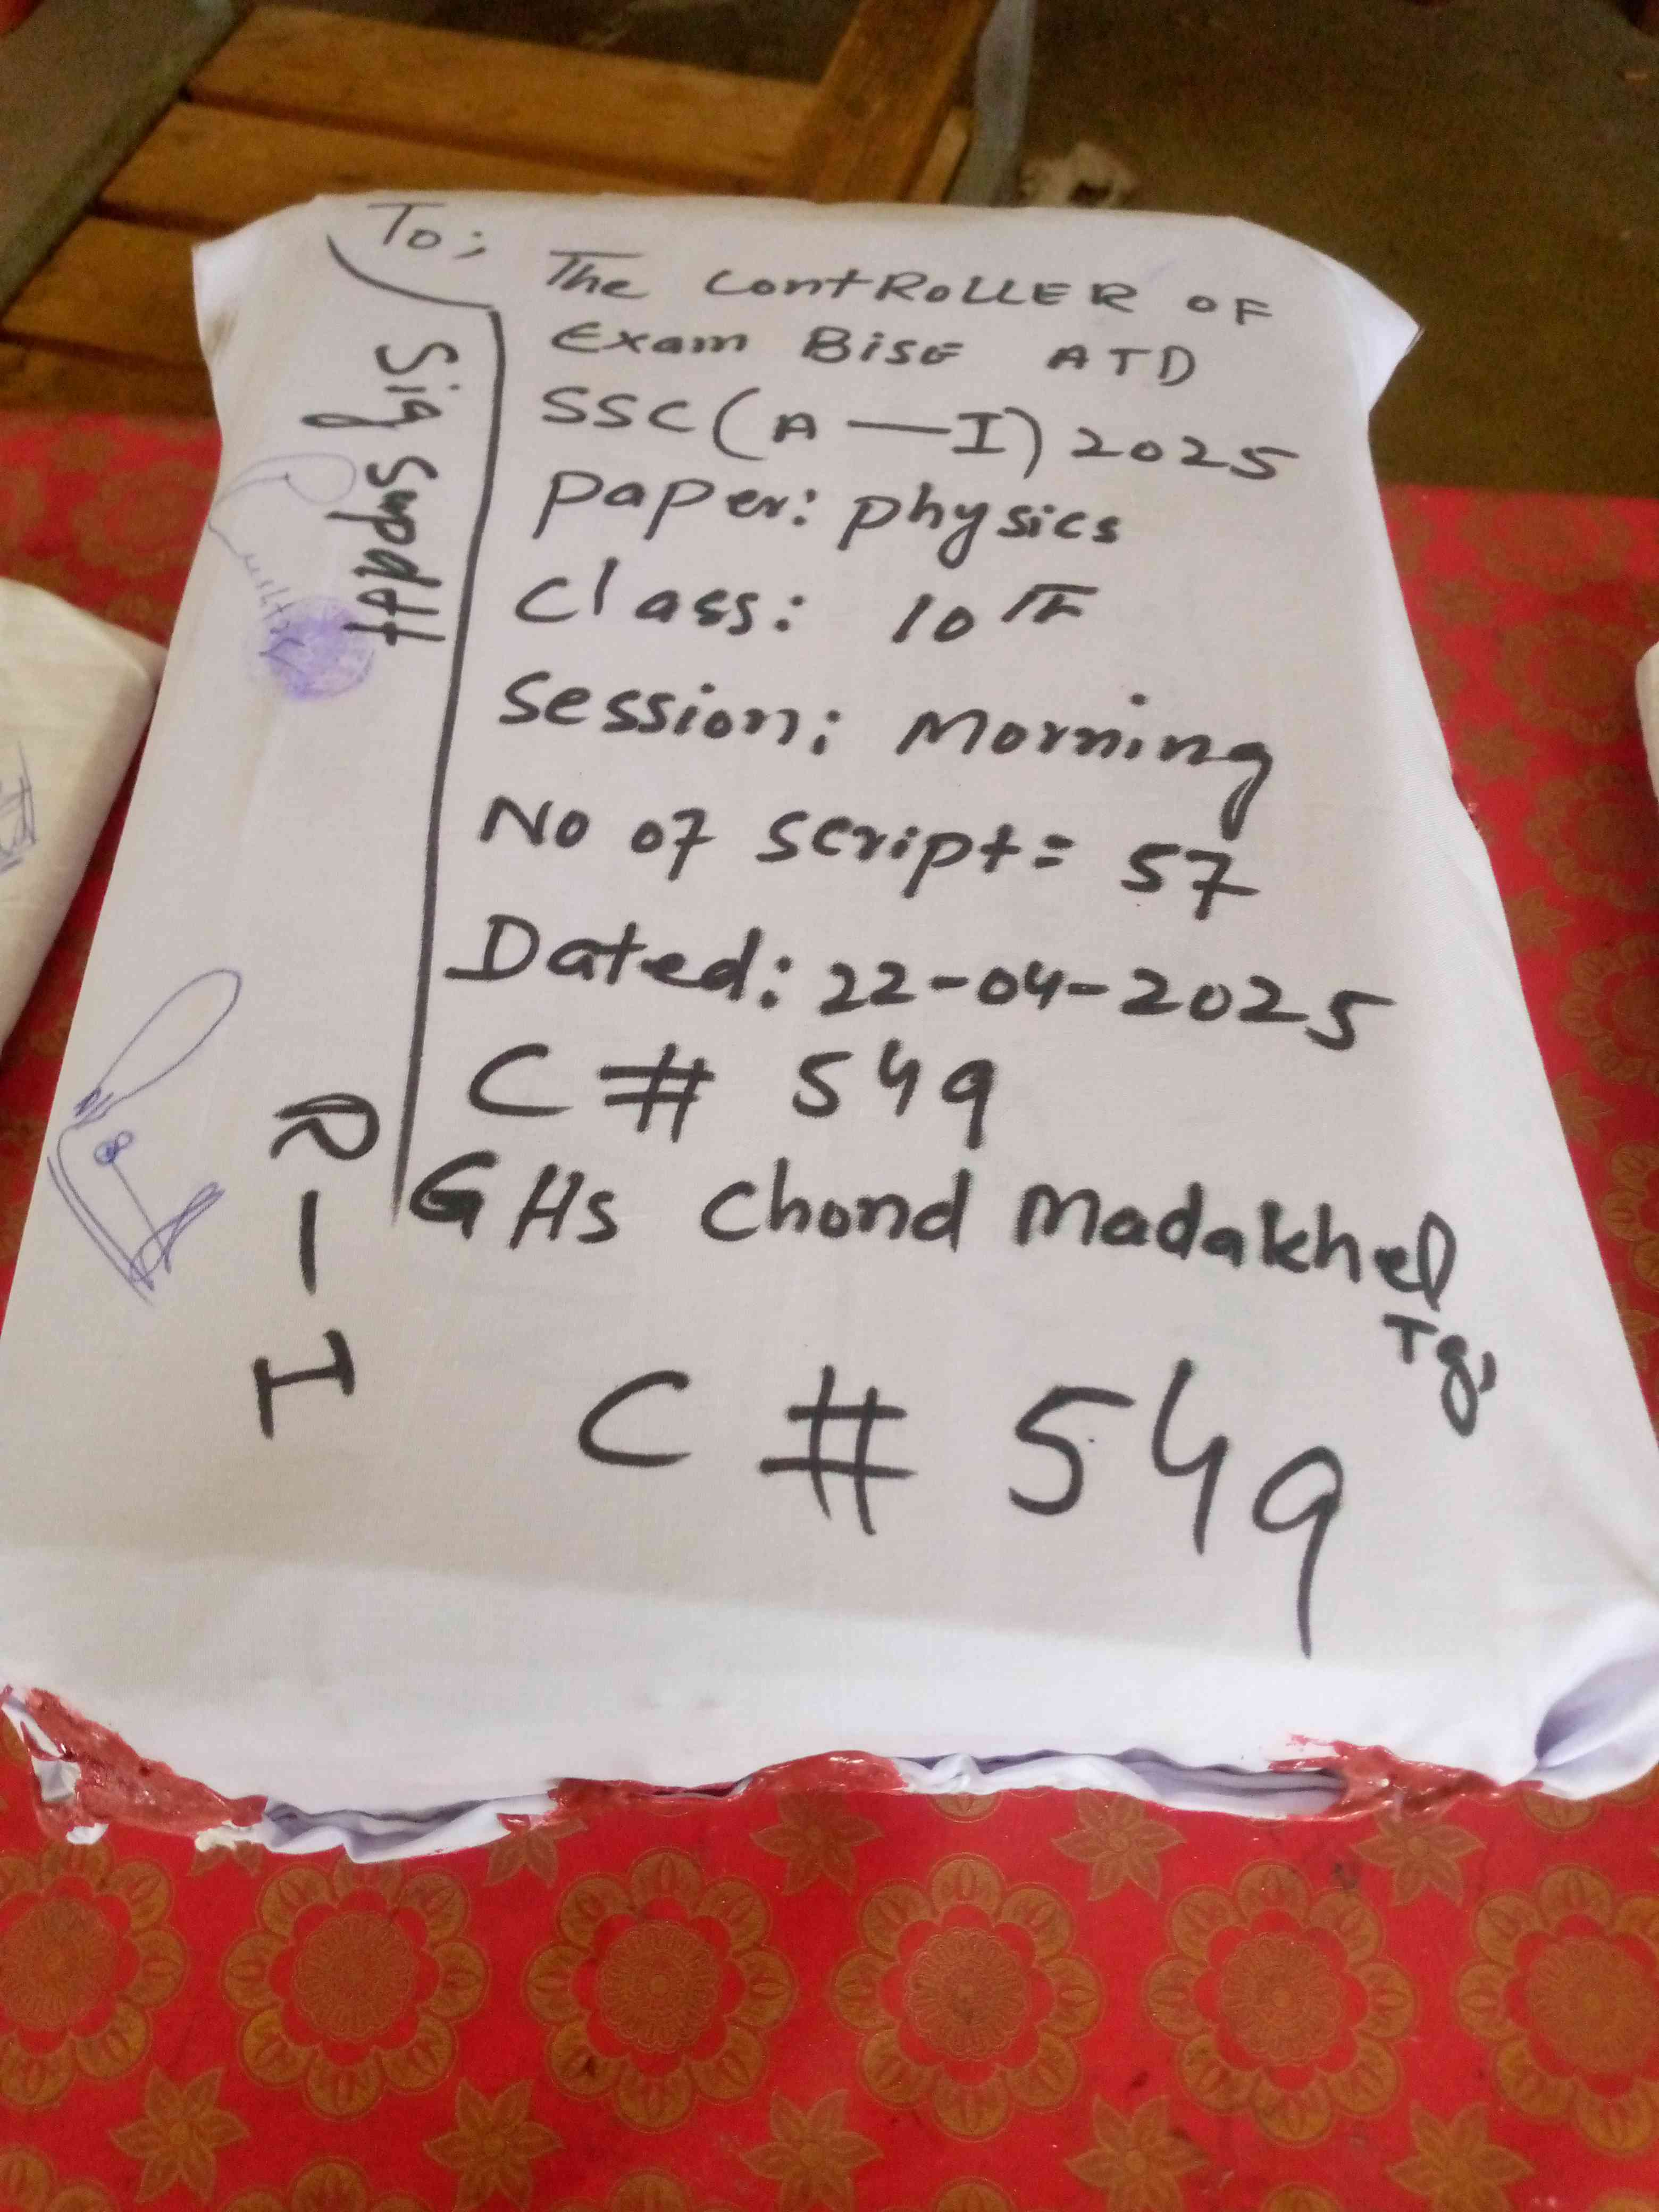 To;
The ContROLLER OF
Exam BiSE ATD
SSC (A—I) 2025
Paper: physics
Class: 10th
Session: Morning
No of script= 57
Dated: 22-04-2025
C # 549
GHs Chond Madakhel
Tg,
C # 549
Sig Supddt
R-I